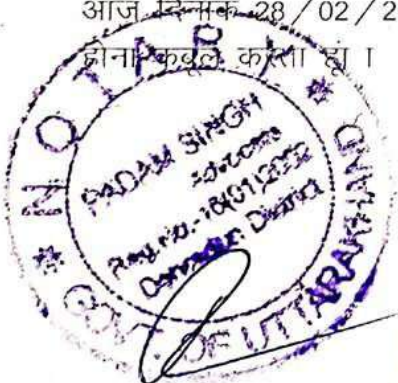 आज दिनांक 28/02/2
होना कबूल करता हूं ।
* NOTARY *
PADAM SINGH
Advocate
Reg. No.-16(01)2002
Dehradun District
GOVT. OF UTTARAKHAND